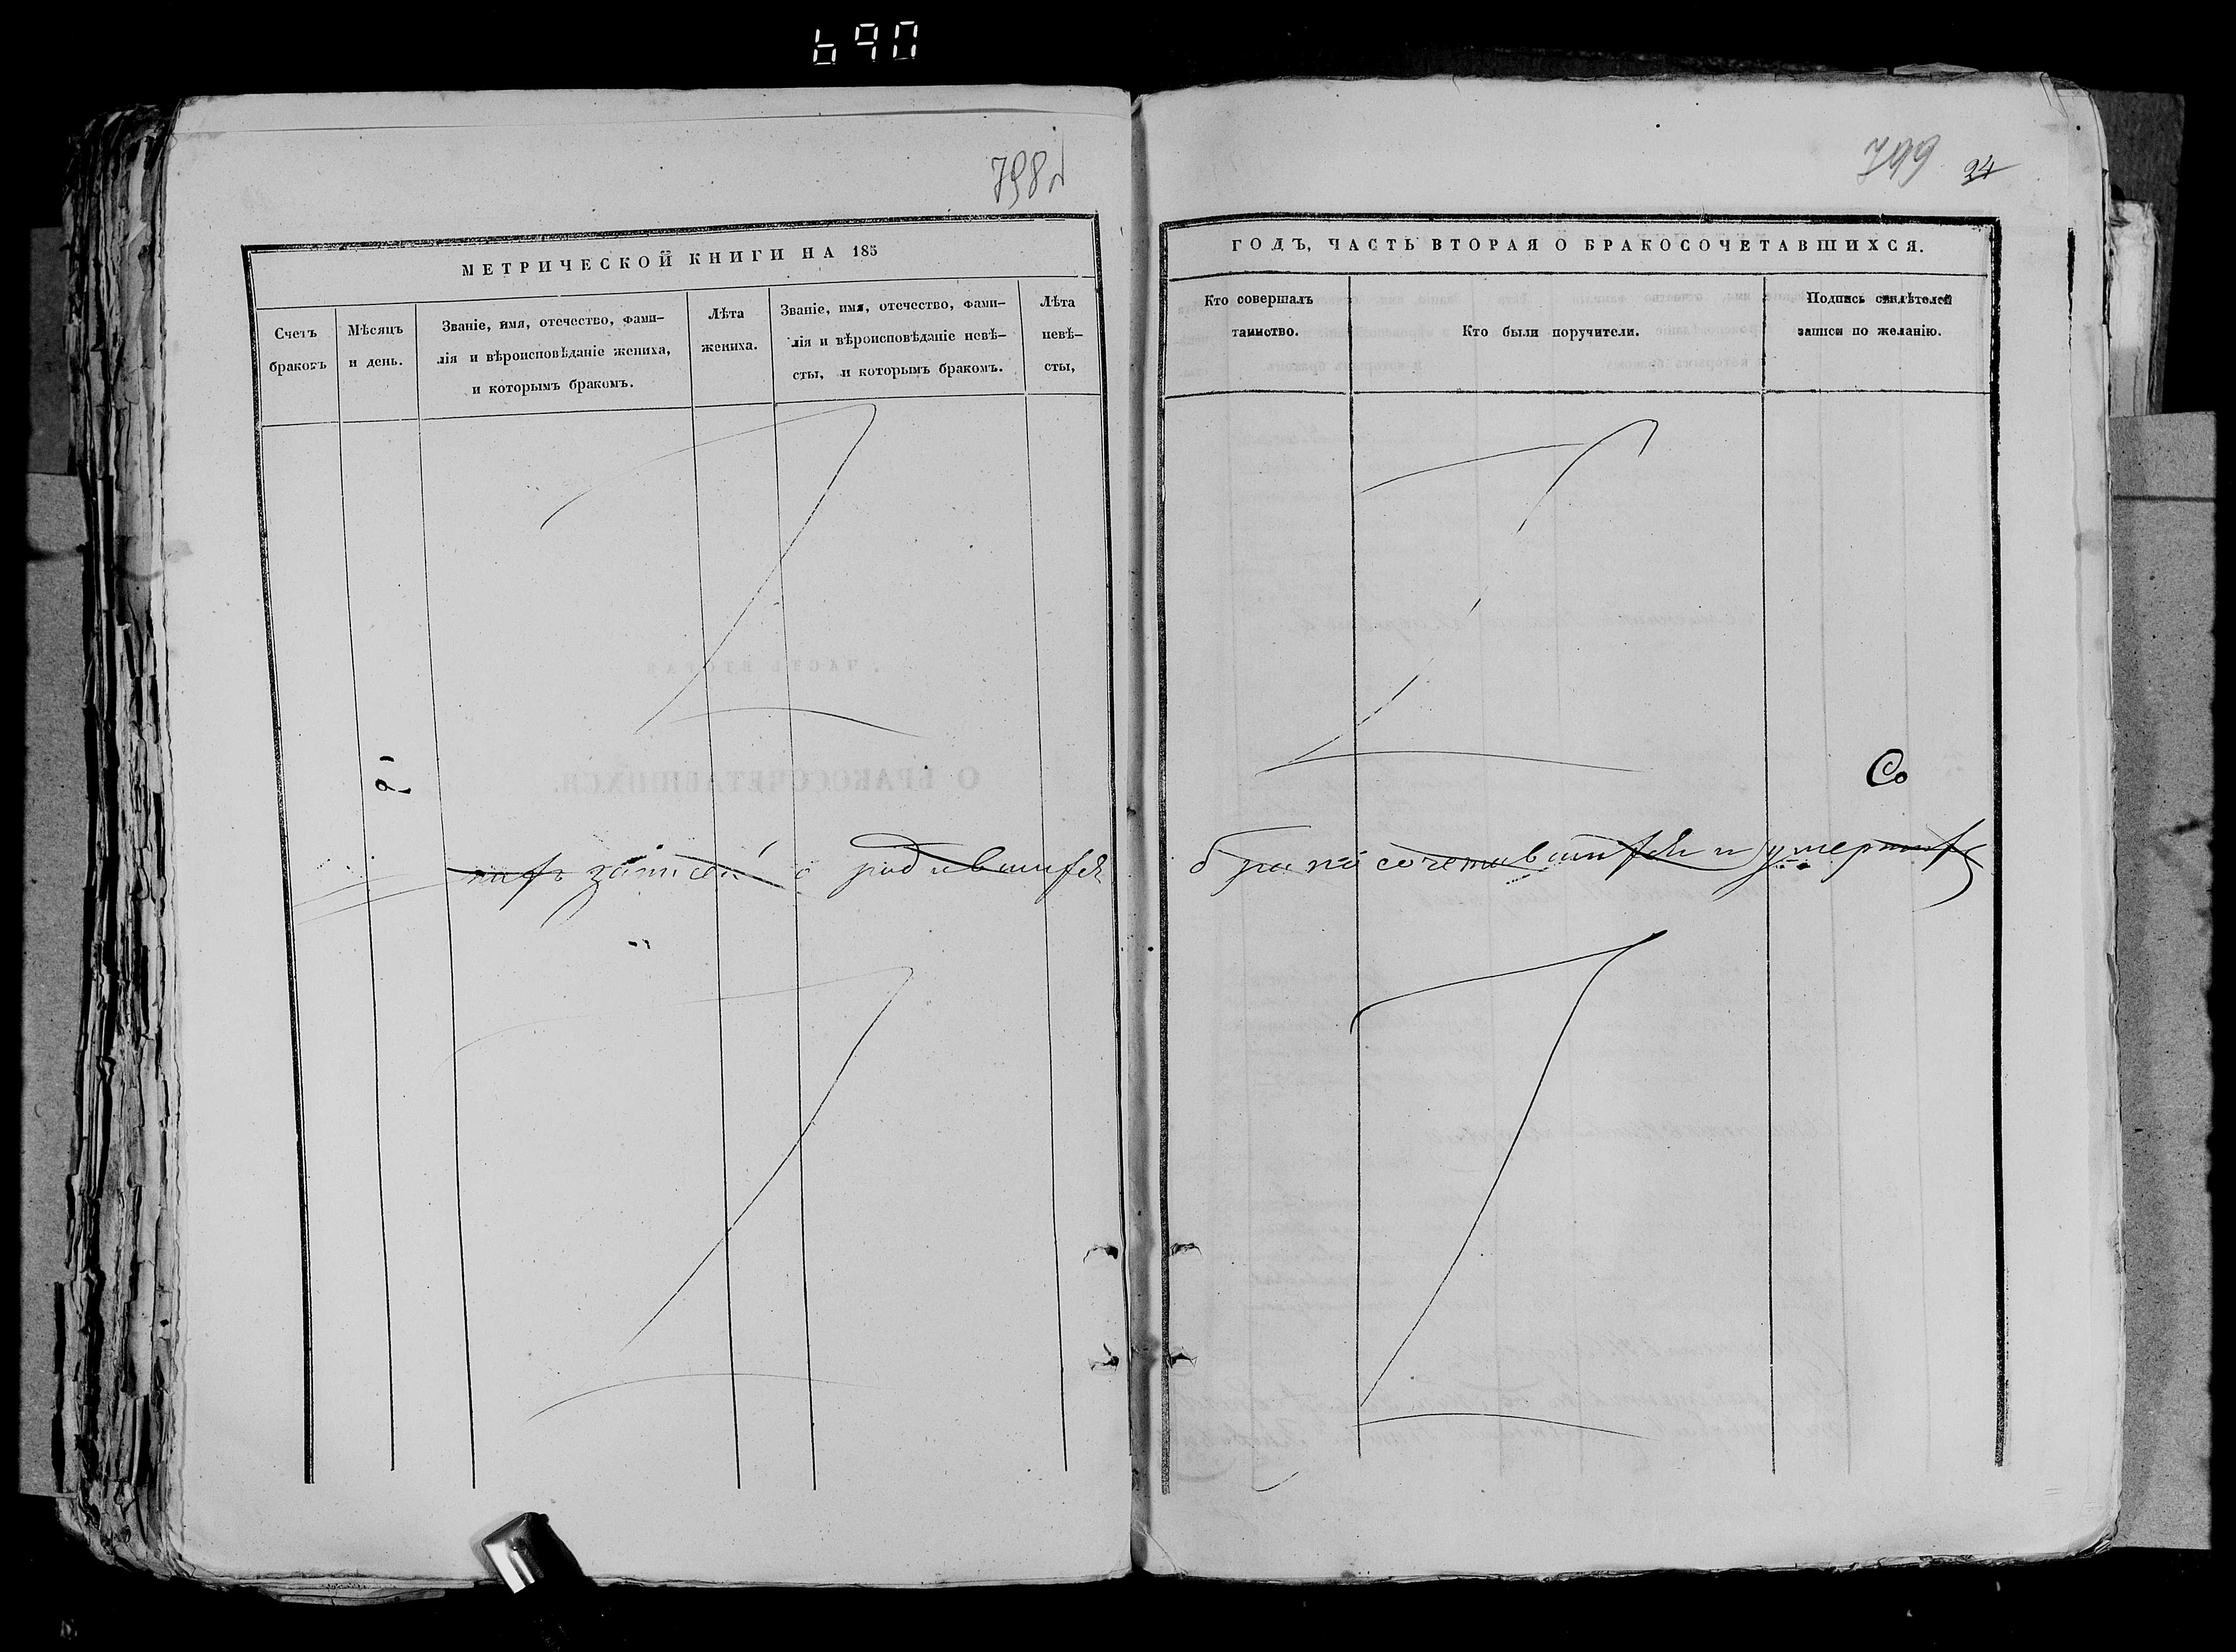 690
798
799 24
МЕТРИЧЕСКОЙ КНИГИ НА 185
ГОДЪ, ЧАСТЬ ВТОРАЯ О БРАКОСОЧЕТАВШИХСЯ.
Счетъ
браковъ
Мѣсяцъ
и день.
Званіе, имя, отечество, фами-
лія и вѣроисповѣданіе жениха,
и которымъ бракомъ.
Лѣта
жениха.
Званіе, имя, отечество, фами-
лія и вѣроисповѣданіе невѣ-
сты, и которымъ бракомъ.
Лѣта
невѣ-
сты,
Кто совершалъ
таинство.
Кто были поручители.
Подпись свидѣтелей
записи по желанію.
Со
записей о родившихся
бракосочетавшихся и умерших